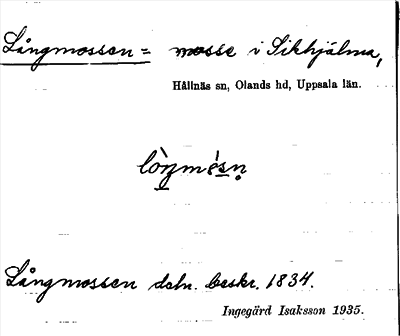 Långmossen = mosse i Sikhjälma,
Hållnäs sn, Olands hd, Uppsala län.
lò̱ŋmè́s̱n̥
Långmossen dsln. beskr. 1834.
Ingegärd Isaksson 1935.